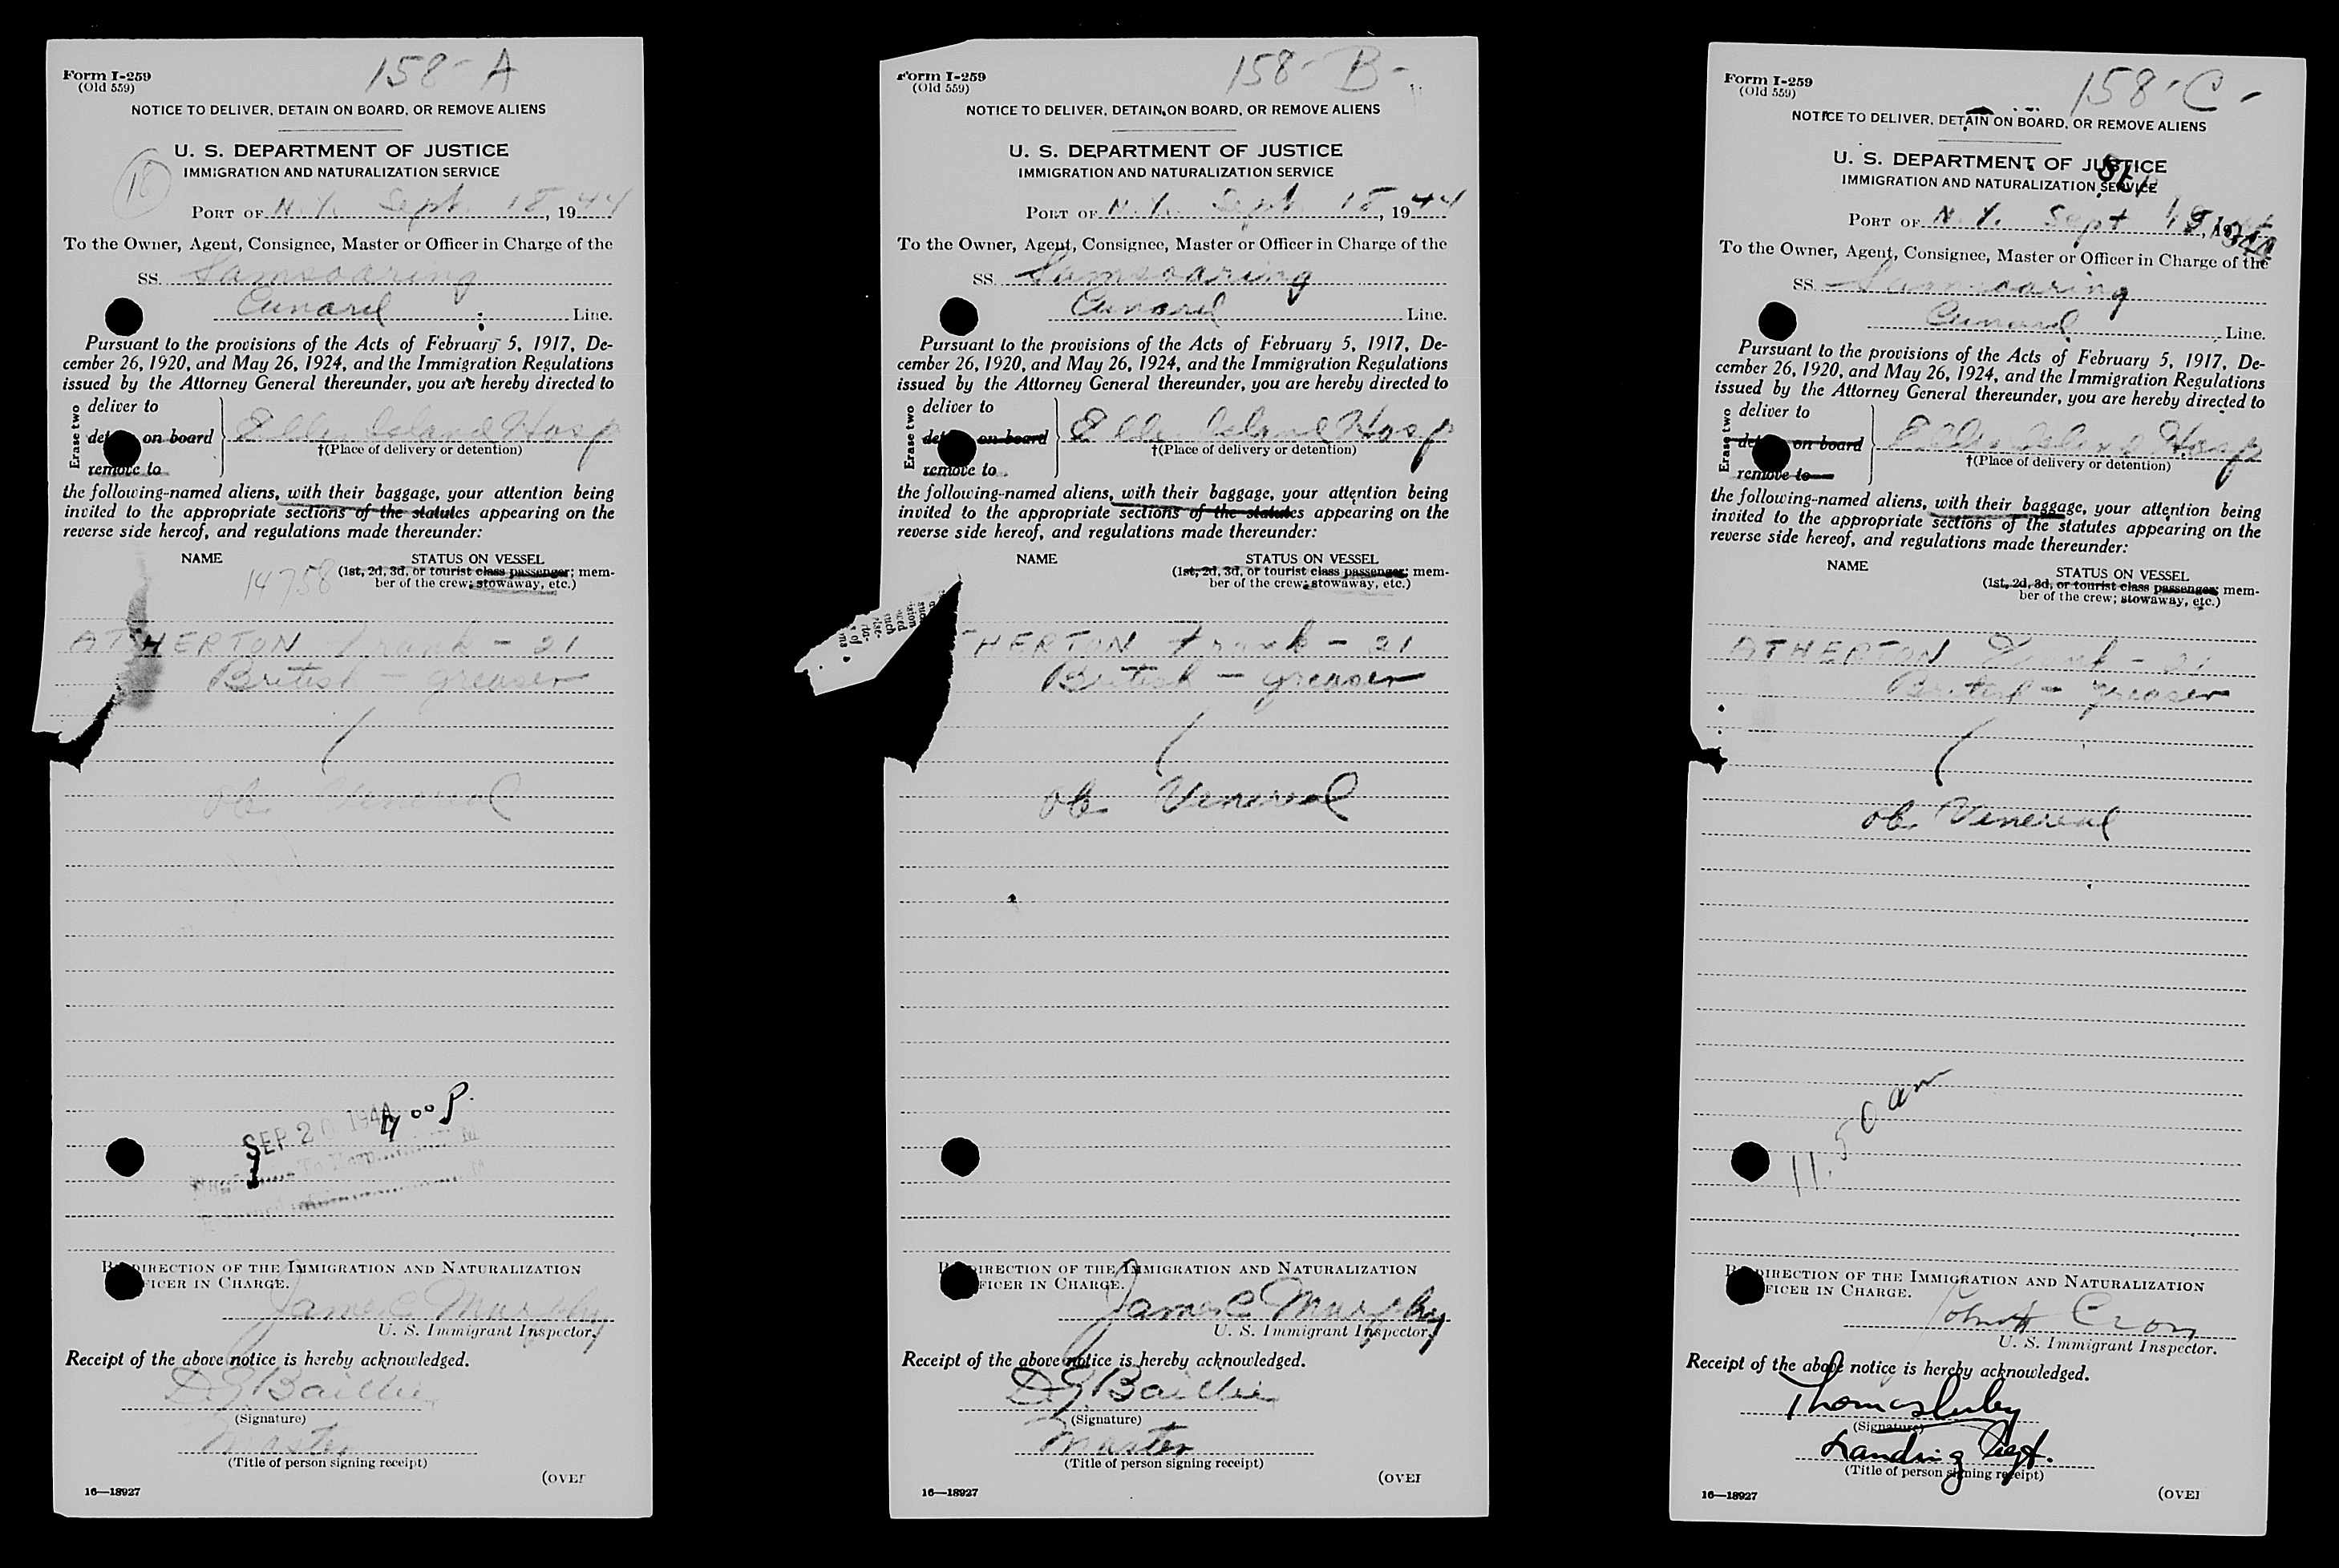 158-A
Form I-259
(Old 559)
NOTICE TO DELIVER, DETAIN ON BOARD, OR REMOVE ALIENS
U. S. DEPARTMENT OF JUSTICE
IMMIGRATION AND NATURALIZATION SERVICE
18
PORT OF N.Y. Sept. 18, 1944
To the Owner, Agent, Consignee, Master or Officer in Charge of the
SS. Samsoaring
Cunard Line.
Pursuant to the provisions of the Acts of February 5, 1917, De-
cember 26, 1920, and May 26, 1924, and the Immigration Regulations
issued by the Attorney General thereunder, you are hereby directed to
Erase two
deliver to
det on board
remove to
Ellis Island Hosp
†(Place of delivery or detention)
the following-named aliens, with their baggage, your attention being
invited to the appropriate sections of the statutes appearing on the
reverse side hereof, and regulations made thereunder:
NAME STATUS ON VESSEL
(1st, 2d, 3d, or tourist class passenger; mem-
ber of the crew; stowaway, etc.)
14758
ATHERTON Frank - 21
British - greaser
ob Venereal
SEP 20 1944 4 00 P.
To Hosp
BY DIRECTION OF THE IMMIGRATION AND NATURALIZATION
FICER IN CHARGE.
James C Murphy
U. S. Immigrant Inspector.
Receipt of the above notice is hereby acknowledged.
D G Baillie
(Signature)
Master
(Title of person signing receipt)
(OVER
16—18927
158-B-
Form I-259
(Old 559)
NOTICE TO DELIVER, DETAIN ON BOARD, OR REMOVE ALIENS
U. S. DEPARTMENT OF JUSTICE
IMMIGRATION AND NATURALIZATION SERVICE
PORT OF N.Y. Sept 18, 1944
To the Owner, Agent, Consignee, Master or Officer in Charge of the
SS. Samsoaring
Cunard Line.
Pursuant to the provisions of the Acts of February 5, 1917, De-
cember 26, 1920, and May 26, 1924, and the Immigration Regulations
issued by the Attorney General thereunder, you are hereby directed to
Erase two
deliver to
det on board
remove to
Ellis Island Hosp
†(Place of delivery or detention)
the following-named aliens, with their baggage, your attention being
invited to the appropriate sections of the statutes appearing on the
reverse side hereof, and regulations made thereunder:
NAME STATUS ON VESSEL
(1st, 2d, 3d, or tourist class passenger; mem-
ber of the crew; stowaway, etc.)
THERTON Frank - 21
British - greaser
ob Venereal
BY DIRECTION OF THE IMMIGRATION AND NATURALIZATION
FICER IN CHARGE.
James C Murphy
U. S. Immigrant Inspector.
Receipt of the above notice is hereby acknowledged.
D G Baillie
(Signature)
Master
(Title of person signing receipt)
(OVER
16—18927
158-C-
Form I-259
(Old 559)
NOTICE TO DELIVER, DETAIN ON BOARD, OR REMOVE ALIENS
U. S. DEPARTMENT OF JUSTICE
IMMIGRATION AND NATURALIZATION SERVICE
PORT OF N.Y. Sept 18, 1944
To the Owner, Agent, Consignee, Master or Officer in Charge of the
SS. Samsoaring
Cunard Line.
Pursuant to the provisions of the Acts of February 5, 1917, De-
cember 26, 1920, and May 26, 1924, and the Immigration Regulations
issued by the Attorney General thereunder, you are hereby directed to
Erase two
deliver to
det on board
remove to
Ellis Island Hosp
†(Place of delivery or detention)
the following-named aliens, with their baggage, your attention being
invited to the appropriate sections of the statutes appearing on the
reverse side hereof, and regulations made thereunder:
NAME STATUS ON VESSEL
(1st, 2d, 3d, or tourist class passenger; mem-
ber of the crew; stowaway, etc.)
ATHERTON Frank - 21
British - greaser
ob Venereal
11.50 am
BY DIRECTION OF THE IMMIGRATION AND NATURALIZATION
FICER IN CHARGE.
U. S. Immigrant Inspector.
Receipt of the above notice is hereby acknowledged.
Thomas
(Signature)
Landing Agt.
(Title of person signing receipt)
(OVER
16—18927